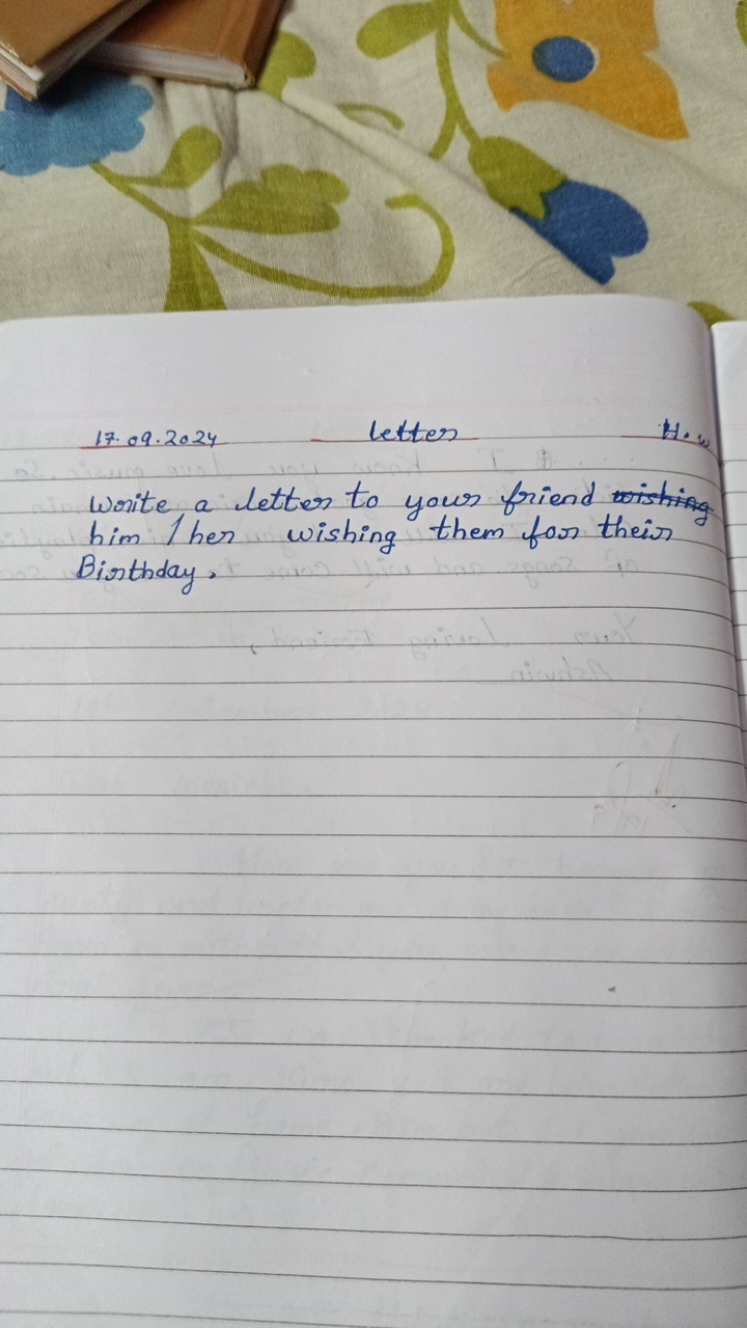 17.09.2024 letter H.w
Write a letter to your friend wishing
him / her wishing them for their
Birthday.